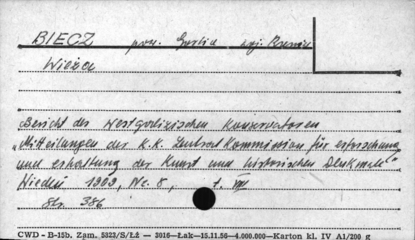 BIECZ pow. Gorlice woj. Rzesz.
Wieża
Bericht des Westgalizischen Konservatoren
"Mitteilungen der K.K. Zentral Kommission für erforschung
und erhaltung der Kunst und historischen Denkmale"
Wiedeń 1909, Nr. 8, t. VIII
Str. 386
CWD - B-15b. Zam. 5323/S/ŁŻ — 3016—Łak—15.11.56—4.000.000—Karton kl. IV A1/200 g